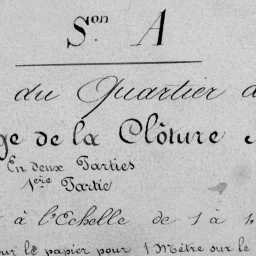 Son A
du Quartier d
ge de la Clôture
En deux Parties
1ère Partie
à l'Echelle de 1 à
sur le papier pour 1 Mètre sur le